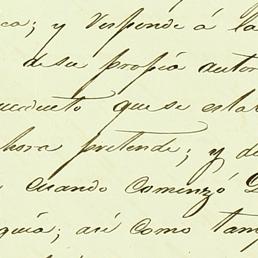 ca; y responde á la
de su propia autor
ueducto que se esta
hora pretende; y de
cuando comenzó
quia; así como tam